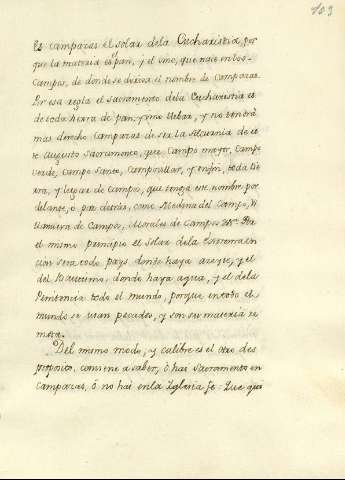 103
Es camparas el solar dela Eucharistia, por
que la materia es pan, y el vino, que nace en los
Campos, de donde se deriva el nombre de Camparas.
Por esa regla el sacramento dela Eucharistia es
de toda tierra de pan, y no tendrá
mas derecho Camparas de ser la de es
te Augusto Sacramento, que Campo mayor, Campo
Verde, Campo Santo, Campo y enfin, toda tie
rra, y lugar de Campos, que tenga este nombre por
delante, o por detras, como Medina del Campo, Vi
de Campos, Morales de Campos &c. Por
el mismo principio el Solar dela Extremaun
cion sera todo pays donde haya azeyte, y el
del Bautismo, donde haya agua, y el dela
Penitencia todo el mundo, porque en todo el
mundo se usan pecados, y son su materia re
mota.
Del mismo modo, y calibre es el otro des
proposito, conviene a saber, ó hai Sacramento en
Camparas, ó no hai en la Iglesia fe: Que qui